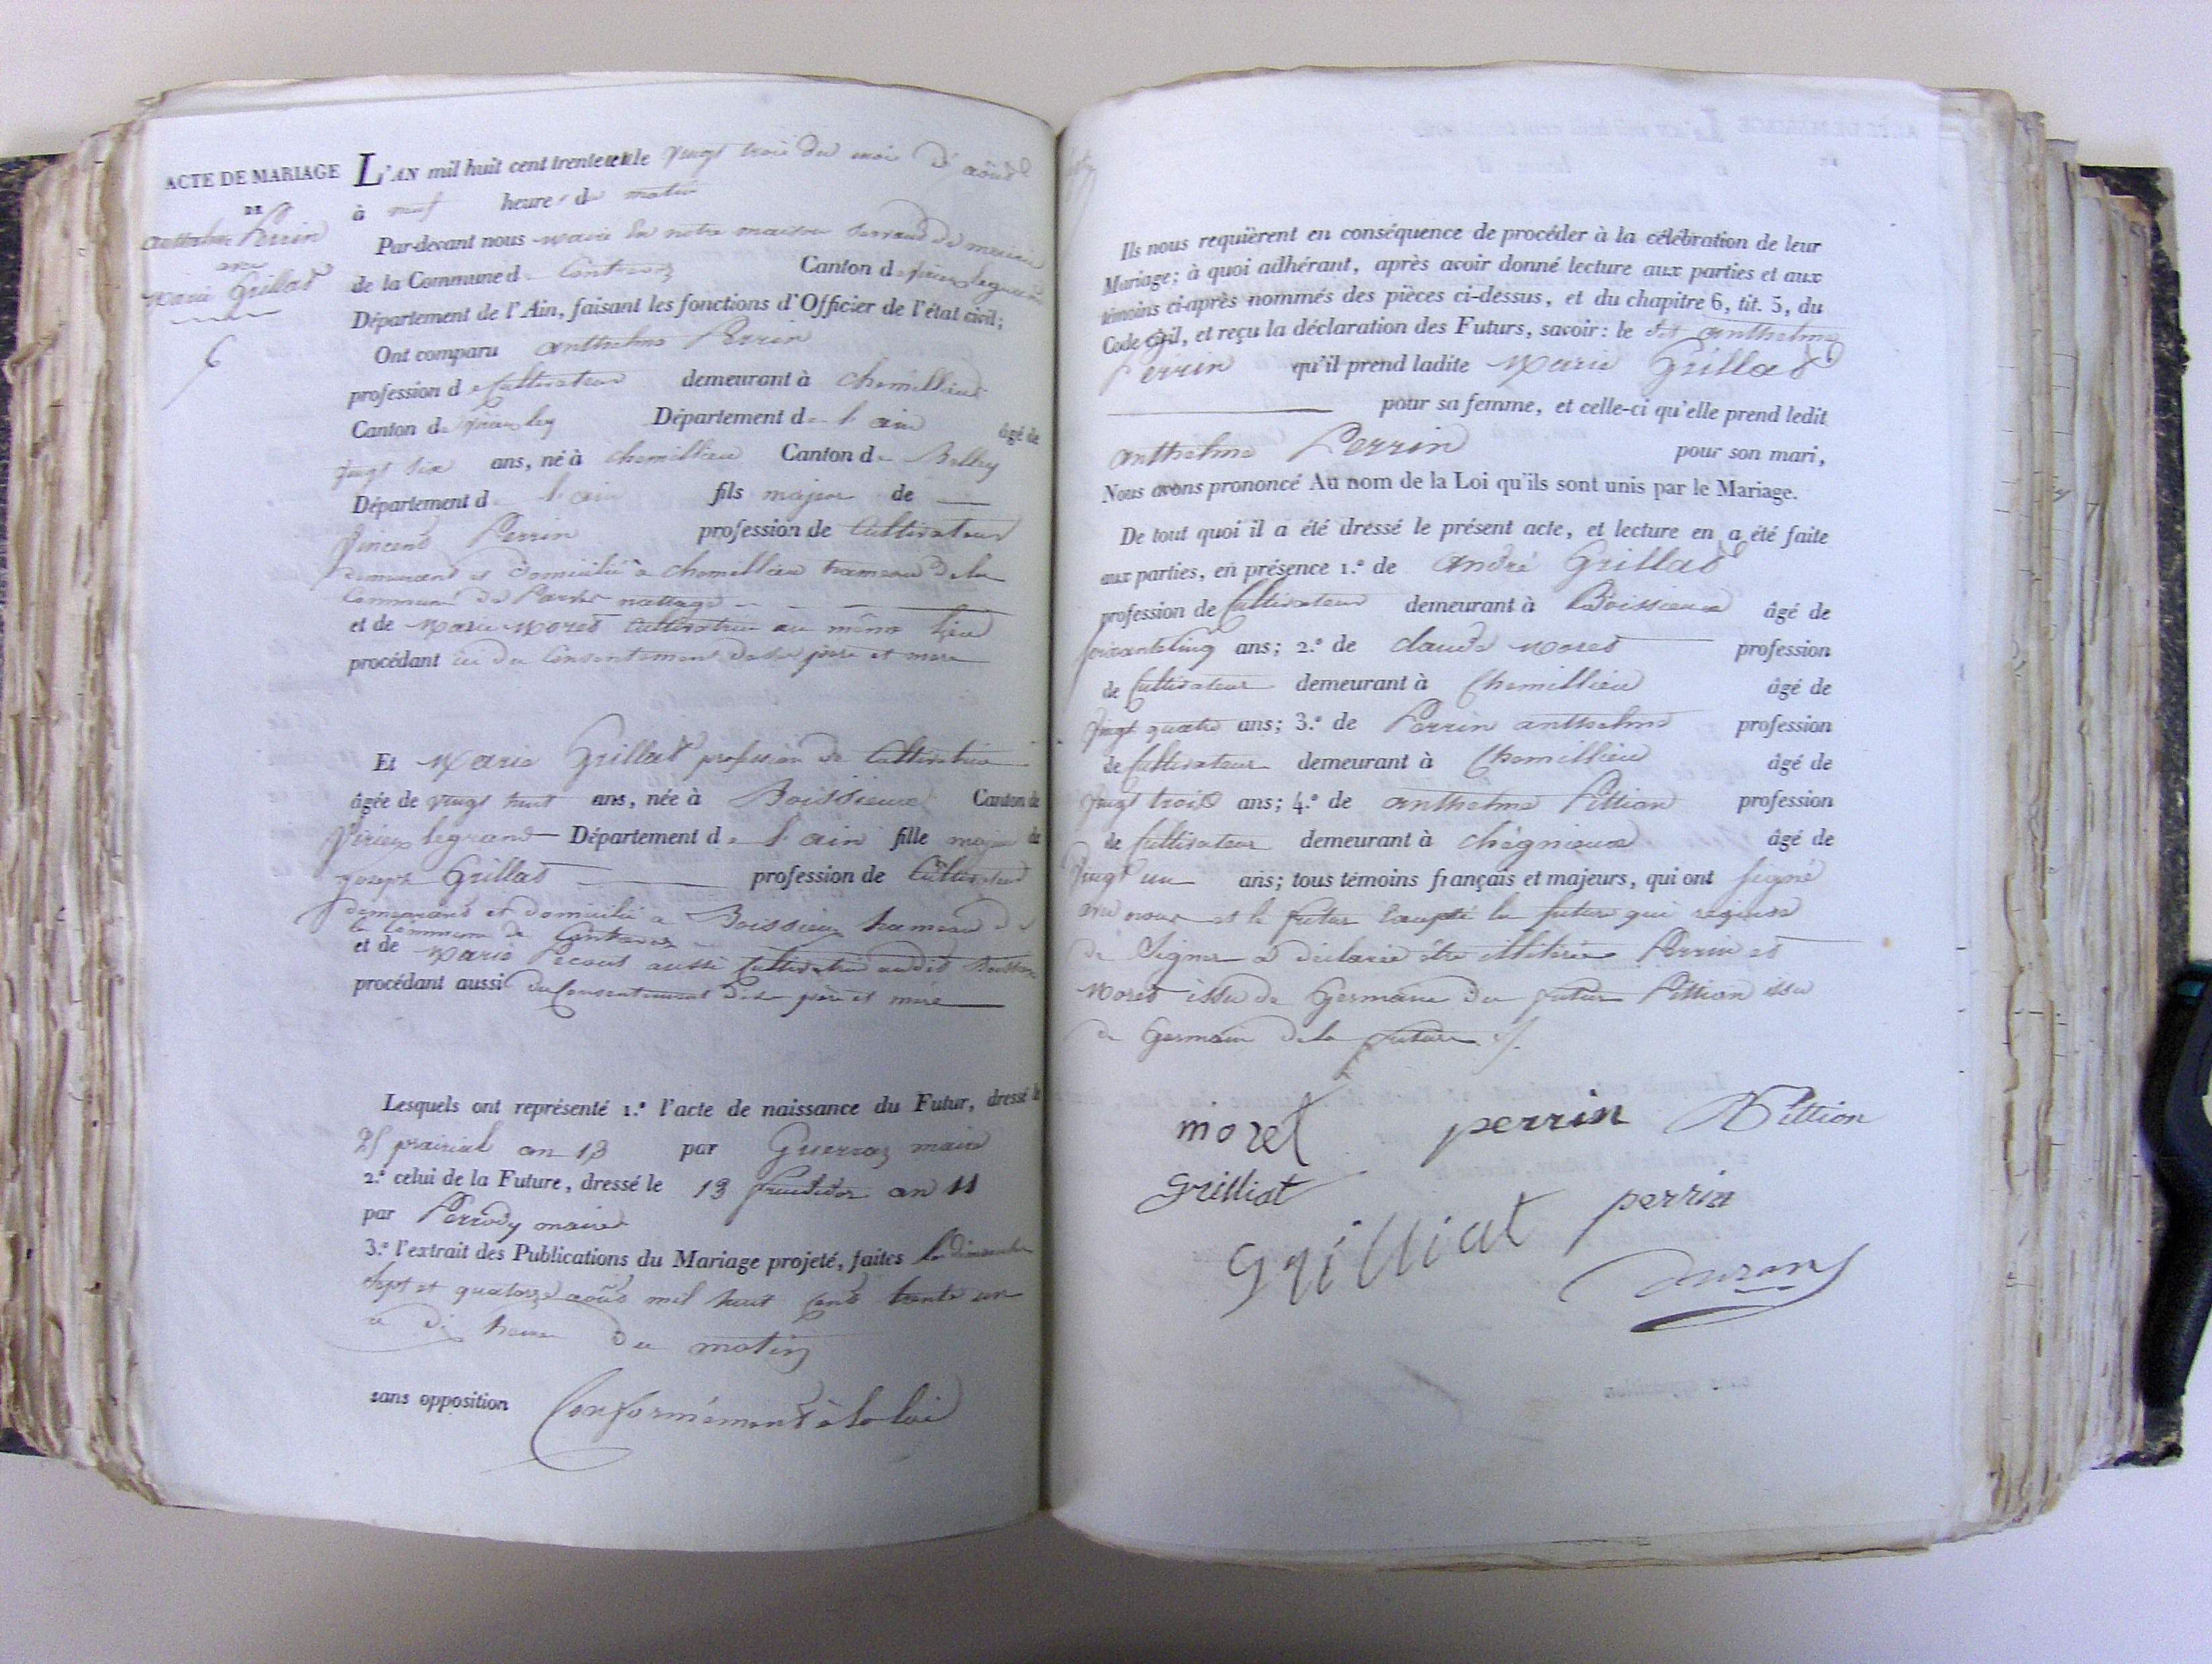 ACTE DE MARIAGE
DE
anthelme Perrin
avec
Marie Grillat
6
L'AN mil huit cent trente et un le vingt trois du mois d'août
à neuf heures du matin
Par-devant nous maire en notre maison servant de mairie
de la Commune de Contrevoz Canton de virieu legrand
Département de l'Ain, faisant les fonctions d'Officier de l'état civil;
Ont comparu anthelme Perrin
profession de Cultivateur demeurant à chemillieu
Canton de Département de l'ain âgé de
vingt six ans, né à chemillieu Canton de Belley
Département de l'ain fils majeur de
Vincent Perrin profession de Cultivateur
demeurant et domicilié a chemillieu hameau de la
Commune de Parves nattage
et de Marie Moret Cultivatrice au même lieu
procédant ici du Consentement de ses père et mere
Et Marie Grillat profession de Cultivatrice
âgée de vingt huit ans, née à Boissieux Canton de
Virieu legrand Département de l'ain fille majeure de
Joseph Grillat profession de Cultivateur
demeurant et domicilié a Boissieu hameau de
la Commune de Contrevoz
et de Marie aussi Cultivatrice audit Boissieu
procédant aussi du Consentement de ses père et mère
Lesquels ont représenté 1.º l'acte de naissance du Futur, dressé le
25 prairial an 13 par Guerraz maire
2.º celui de la Future, dressé le 13 fructidor an 11
par Perrody maire
3.º l'extrait des Publications du Mariage projeté, faites les dimanches
sept et quatorze août mil huit cent trente un
a dix heures du matin
sans opposition Conformément à la loi
Ils nous requièrent en conséquence de procéder à la célébration de leur
Mariage; à quoi adhérant, après avoir donné lecture aux parties et aux
témoins ci-après nommés des pièces ci-dessus, et du chapitre 6, tit. 5, du
Code civil, et reçu la déclaration des Futurs, savoir: le dit anthelme
Perrin qu'il prend ladite Marie Grillat
pour sa femme, et celle-ci qu'elle prend ledit
anthelme Perrin pour son mari,
Nous avons prononcé Au nom de la Loi qu'ils sont unis par le Mariage.
De tout quoi il a été dressé le présent acte, et lecture en a été faite
aux parties, en présence 1.º de André Grillat
profession de Cultivateur demeurant à Boissieux âgé de
soixante cinq ans; 2.º de claude Moret profession
de Cultivateur demeurant à Chemillieu âgé de
vingt quatre ans; 3.º de Perrin anthelme profession
de Cultivateur demeurant à Chemillieu âgé de
vingt trois ans; 4.º de anthelme Pittion profession
de Cultivateur demeurant à chégnieux âgé de
vingt un ans; tous témoins français et majeurs, qui ont signé
avec nous et le futur excepté la future qui requise
de Signer a déclaré être illitérée Perrin et
Moret issu de Germain du futur Pittion issu
de Germain de la future ./.
morel perrin Pittion
Grilliat
Grilliat perrin